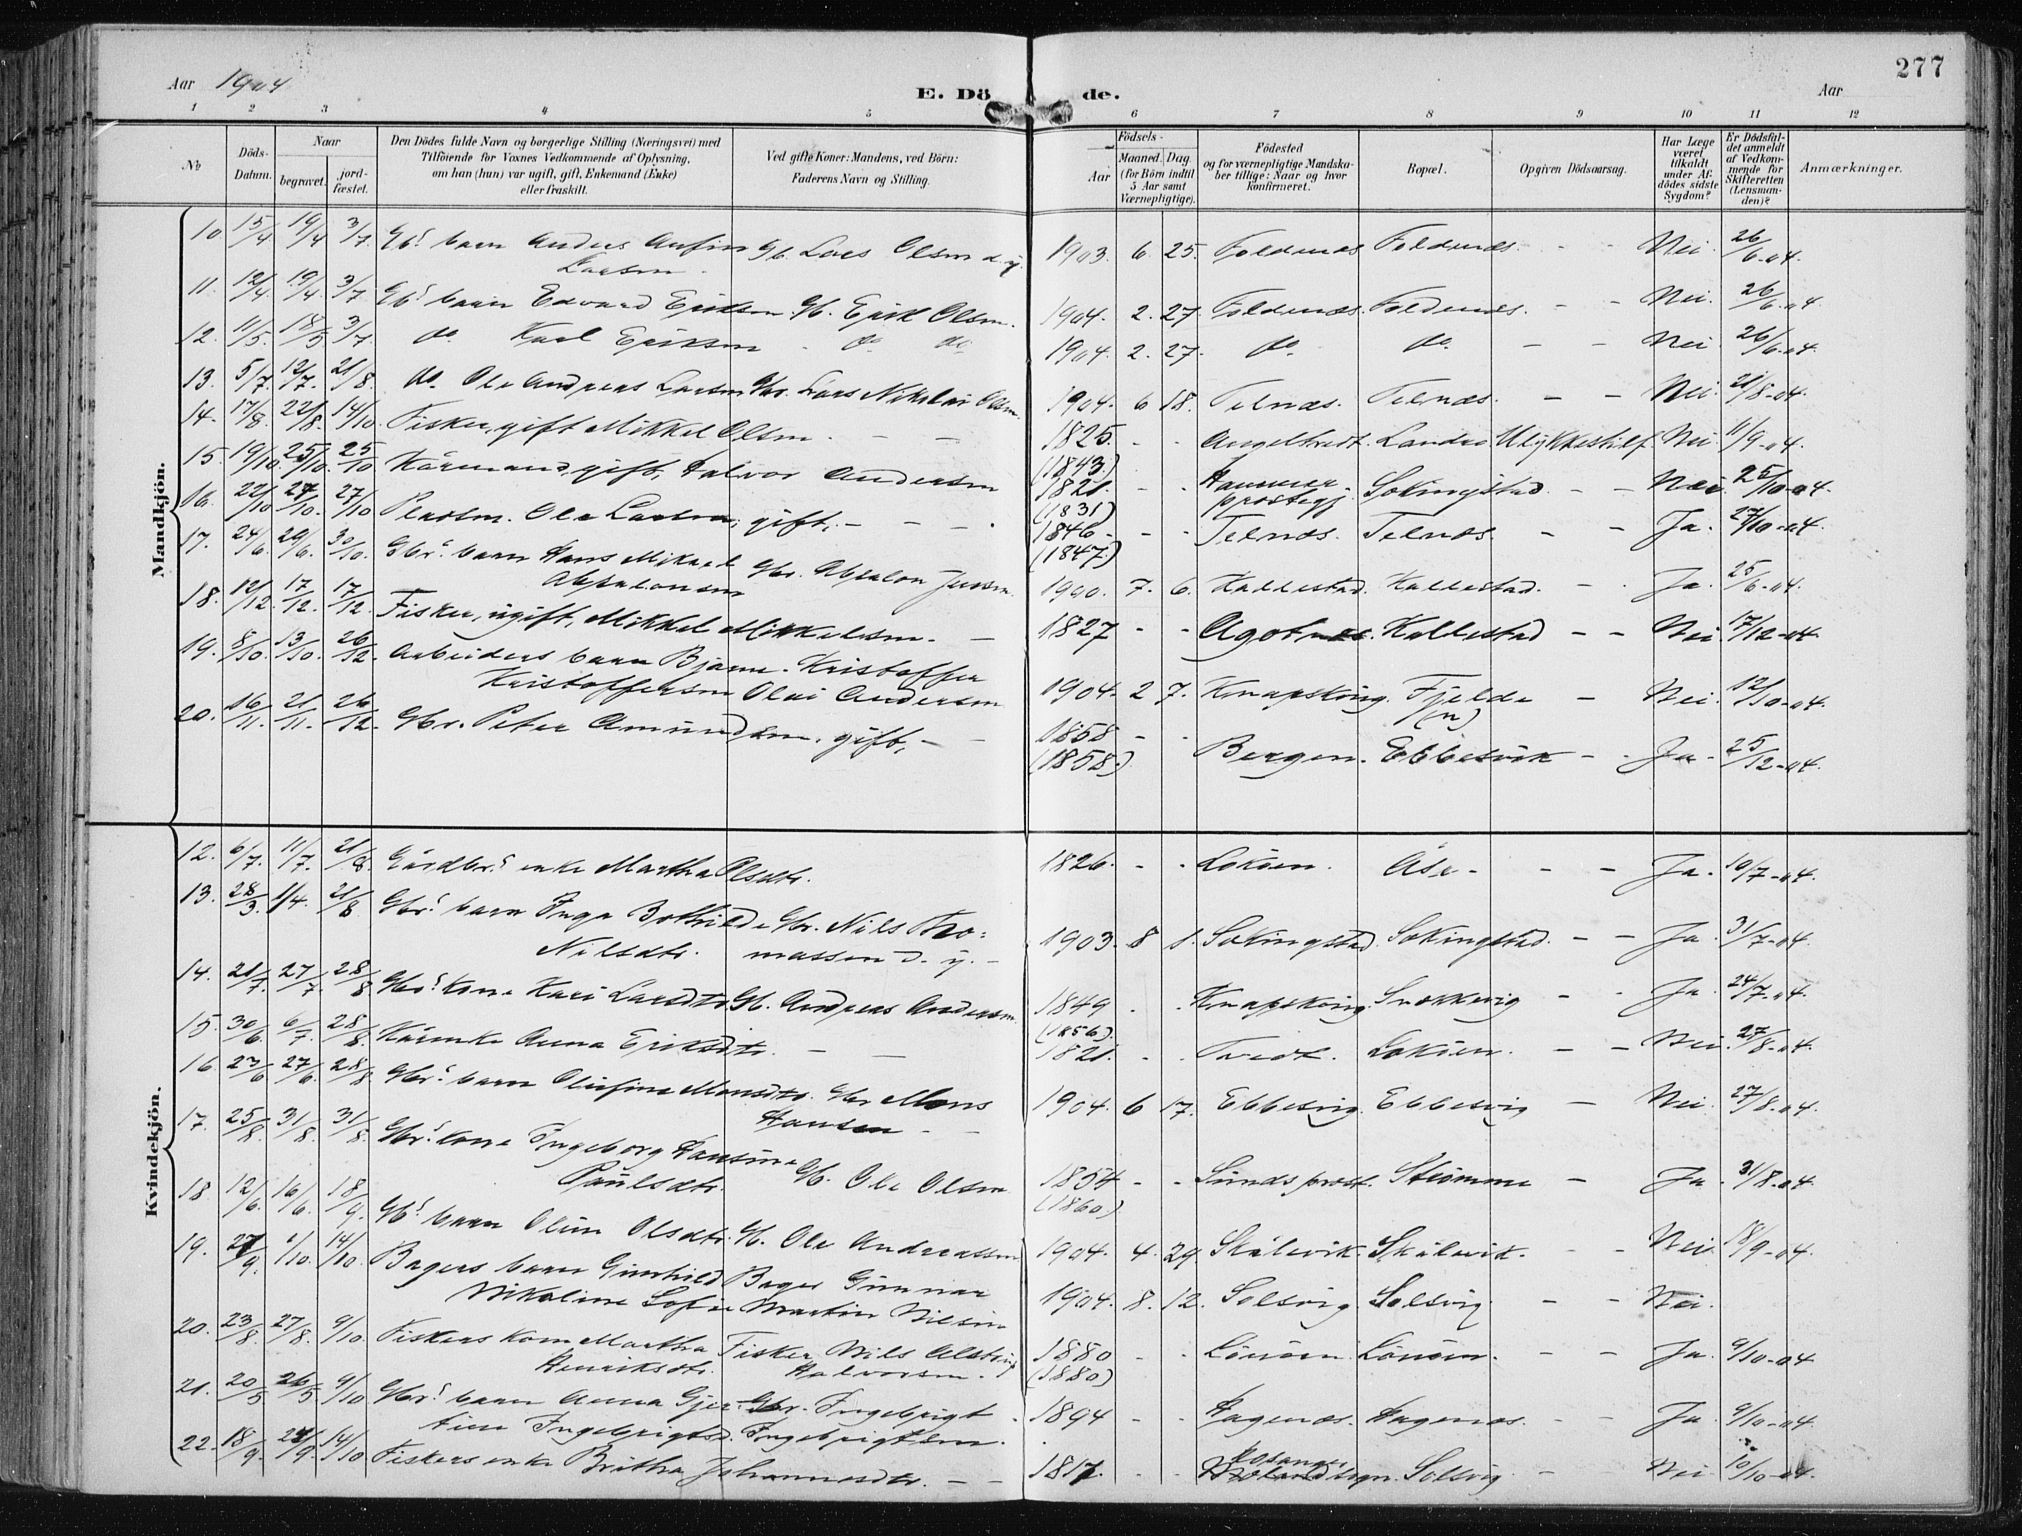 277
Aar 1904
E. Dö de.
Aar
1 2 3 4 5 6 7 8 9 10 11 12
No
Döds-Datum.
Naar
begravet.
jord-fæstet.
Den Dödes fulde Navn og borgerlige Stilling (Næringsvei) med
Tilföiende for Voxnes Vedkommende af Oplysning,
om han (hun) var ugift, gift, Enkemand (Enke)
eller fraskilt.
Ved gifte Koner: Mandens, ved Börn:
Faderens Navn og Stilling.
Födsels-
Aar
Maaned. Dag.
(for Börn indtil
5 Aar samt
Værnepligtige).
Födested
og for værnepligtige Mandska-
ber tillige: Naar og hvor
konfirmeret.
Bopæl.
Opgiven Dödsaarsag.
Har Læge
været
tilkaldt
under Af-
dödes sidste
Sygdom?
Er Dödsfal-
det anmeldt
af Vedkom-
mende for
Skifteretten
(Lensman-
den)?
Anmærkninger.
Mandkjön.
10. 15/4 19/4 3/7. Gbs barn Anders Anfin Larsen. Gb. Lars Olsen d.y. 1903. 6. 25. Foldnæs Foldnæs. - - Nei 26/6-04.
11. 12/4. 19/4 3/7 Gbs barn Edvard Eriksen Gb. Erik Olsen. 1904. 2. 27. Foldnæs. Foldnæs. - - Nei. 26/6-04.
12. 11/5. 18/5 3/7 do Karl Eriksen - do do 1904. 2. 27. do. do. - - Nei 26/6-04.
13. 5/7. 12/7. 21/8. do. Ole Andreas Larsen Gbr. Lars Nikolai Olsen. 1904. 6 18. Telnæs. Telnæs. - - Nei. 21/8-04.
14. 17/8. 22/8. 14/10. Fisker, gift Mikkel Olsen. - - 1825. (1843.) - - Angeltvedt. Landro Ulykkestilf. Nei 11/9-04.
15. 19/10. 25/10. 25/10 Kårmand, gift, Halvor Andersen 1821. (1831) - - Hammer prestegj. Sekingstad - - Nei. 25/10-04.
16. 22/10 27/10. 27/10 Pladsm. Ole Larsen, gift. - - - 1846. (1847.) - - Telnæs. Telnæs. - Ja. 27/10-04
17. 24/6. 29/6. 30/10. Gbrs barn Hans Mikael Absalonsen Gbr. Absalon Jensen. 1900. 7. 6. Kallestad. Kallestad. - - Ja. 25/6-04.
18. 12/12. 17/12. 17/12. Fisker, ugift, Mikkel Mikkelsen. - 1827 - - Agotnæs. Kallestad - - Nei 17/12-04.
19. 8/10. 13/10. 26/12. Arbeiders barn Bjarne Kristoffersen Kristoffer Olai Andersen 1904. 2 7. Knapskog. Fjelde (n) - Nei. 12/10-04.
20. 16/11. 21/11. 26/12. Gbr. Peter Amundsen. gift, - - 1858 (1858.) - - Bergen. Ebbesvik - - Ja. 25/12-04.
Kvindekjön.
12. 6/7. 11/7. 21/8. Gårdbrs enke Martha Olsdtr. 1826. - - Lokøen. Åse. - - Ja. 10/7-04.
13. 28/3. 1/4. 21/8. Gbrs barn Inga Bothilde Nilsdtr. Gbr. Nils Thomassen d. y. - 1903. 8 1. Sekingstad. Sekingstad. - - Ja. 31/7-04.
14. 21/7. 27/7. 28/8. Gbs kone Kari Larsdtr. Gb. Andreas Andersen. 1849 (1856). - - Knapskog. Snekkevig - - Ja. 24/7-04.
15. 30/6. 6/7. 28/8. Kårenke Anna Eriksdtr. - - 1821. - - Tvedt. Lokøen. - - Nei. 27/8-04.
16 23/6 27/6. 28/8 Gbrs barn Olufine Monsdtr. Gbr Mons Hansen - - 1904. 6 17. Ebbesvig. Ebbesvig - Nei. 27/8-04.
17. 25/8. 31/8 31/8. Gbrs kone Ingeborg Hansine Paulsdtr. Gb. Ole Olsen 1854 (1860). - - Sunds prest. Strømme - Ja. 31/8.04.
18 12/6. 16/6. 18/9. Gbs barn Oline Olsdtr. Gb. Ole Andreassen 1904. 4. 29. Skålevik. Skålevik. - - Nei. 18/9-04.
19. 27/9. 1/10. 14/10. Bagers barn Gunhild Nikoline Sofie Bager Gunnar Martin Nilsen 1904. 8. 12. Solsvig Solsvig. - - Nei.
20. 23/8. 27/8. 9/10. Fiskers kone Martha Henriksdtr. Fisker Nils Halvorsen. 1880 (1880) - - Lønøen. Lønøen. - - Ja. 9/10-04
21. 20/5 26/5 9/10 Gbrs barn Anna Gjertine Ingebrigtsd. Gbr. Ingebrigt Ingebrigtsen. 1894 - - Hagenæs. Hagenæs. - - Ja 9/10-04.
22. 18/9. 24/9. 14/10 Fiskers enke Britha Johannesdtr. - - 1817. - - Hosanger sogn. Solsvig - Nei. 10/10-04.